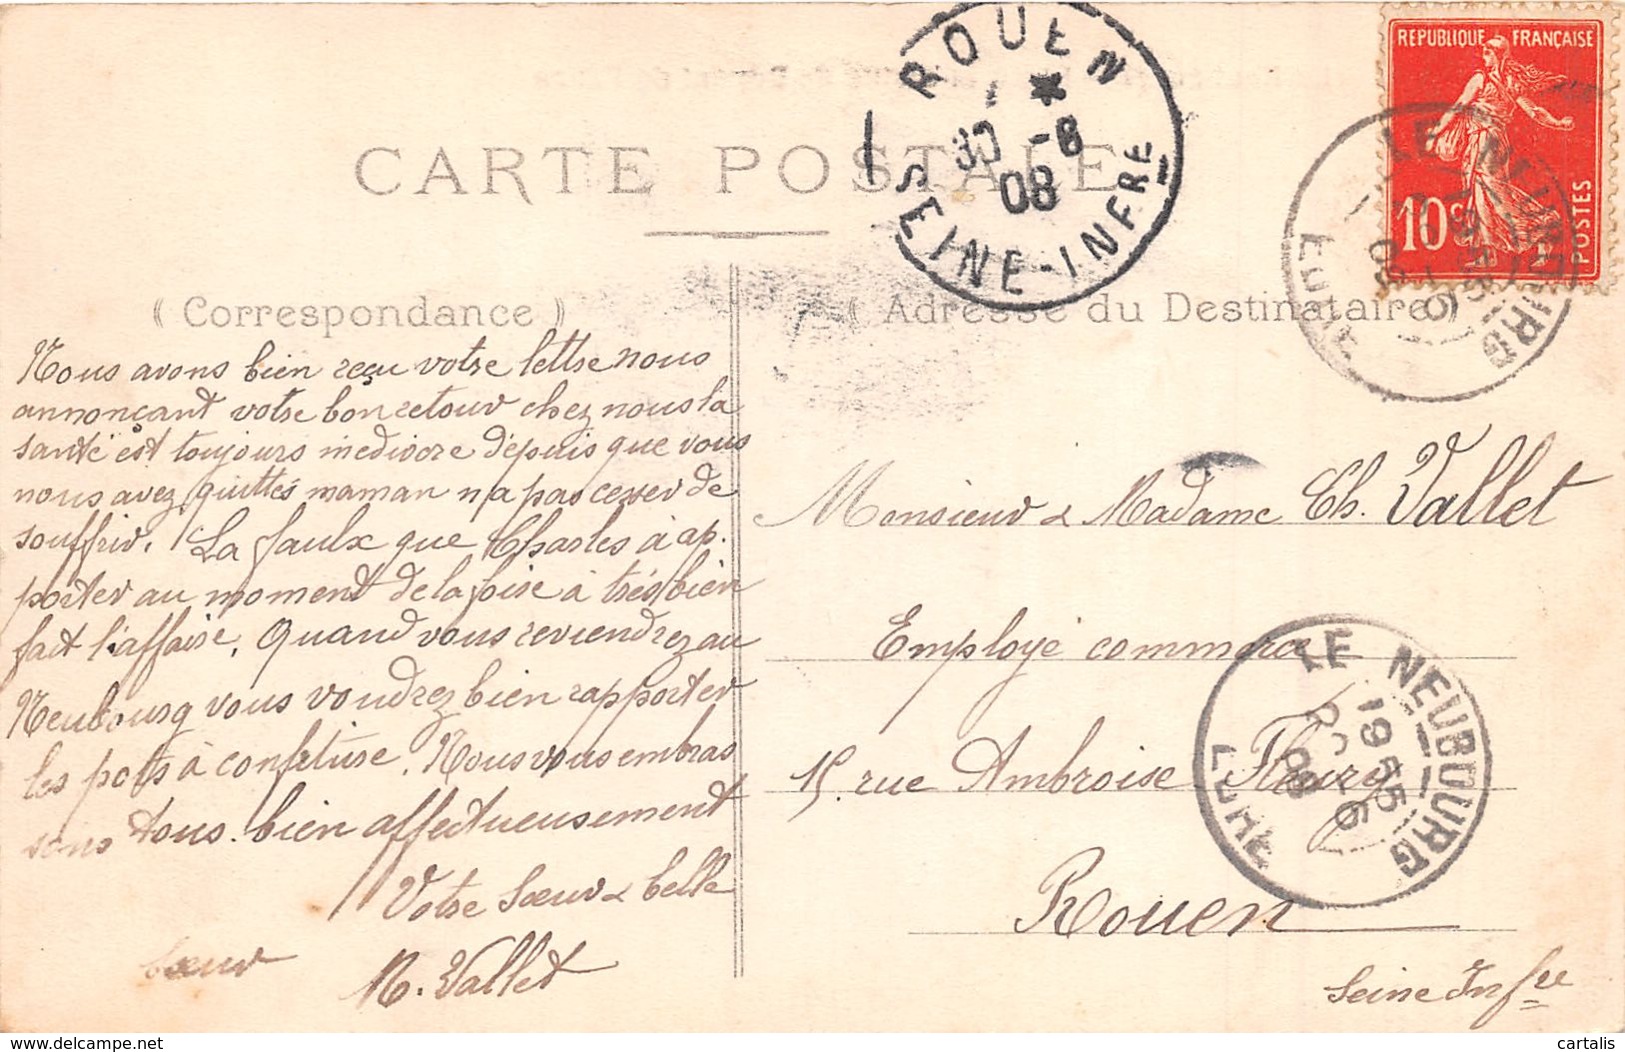 CARTE POSTALE
( Correspondance )
Nous avons bien reçu votre lettre nous
annonçant votre bon retour chez nous la
santé est toujours médiocre depuis que vous
nous avez quittés maman n a pas cesser de
souffrir. La faulx que Charles à ap.
porter au moment de la foire à très bien
fait l'affaire. Quand vous reviendrez au
Neubourg vous voudrez bien rapporter
les pots à confiture. Nous vous embras
sons tous bien affectueusement
Votre Sœur & belle
sœur M. Vallet
( Adresse du Destinataire )
Monsieur & Madame Ch. Vallet
Employé commerce
15. rue Ambroise Fleury
Rouen
Seine Infre
ROUEN
30 -8
08
SEINE-INFRE
REPUBLIQUE FRANÇAISE
10c
POSTES
LE NEUBOURG
EURE
LE NEUBOURG
1955
08
EURE
delcampe.net
cartalis